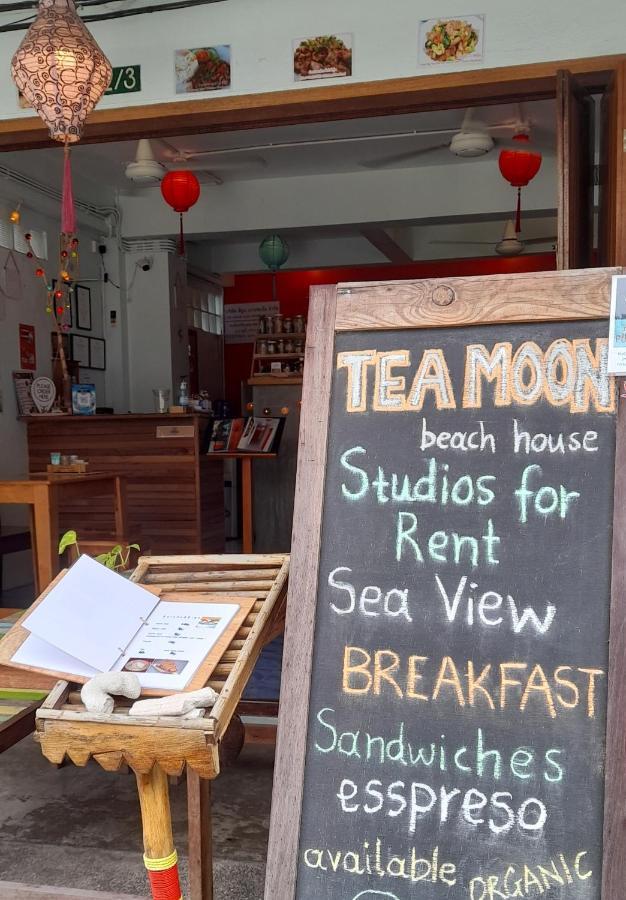 2/3
TEA MOON
beach house
Studios for
Rent
Sea View
BREAKFAST
Sandwiches
esspreso
available ORGANIC
PLEASE
ORDER
HERE